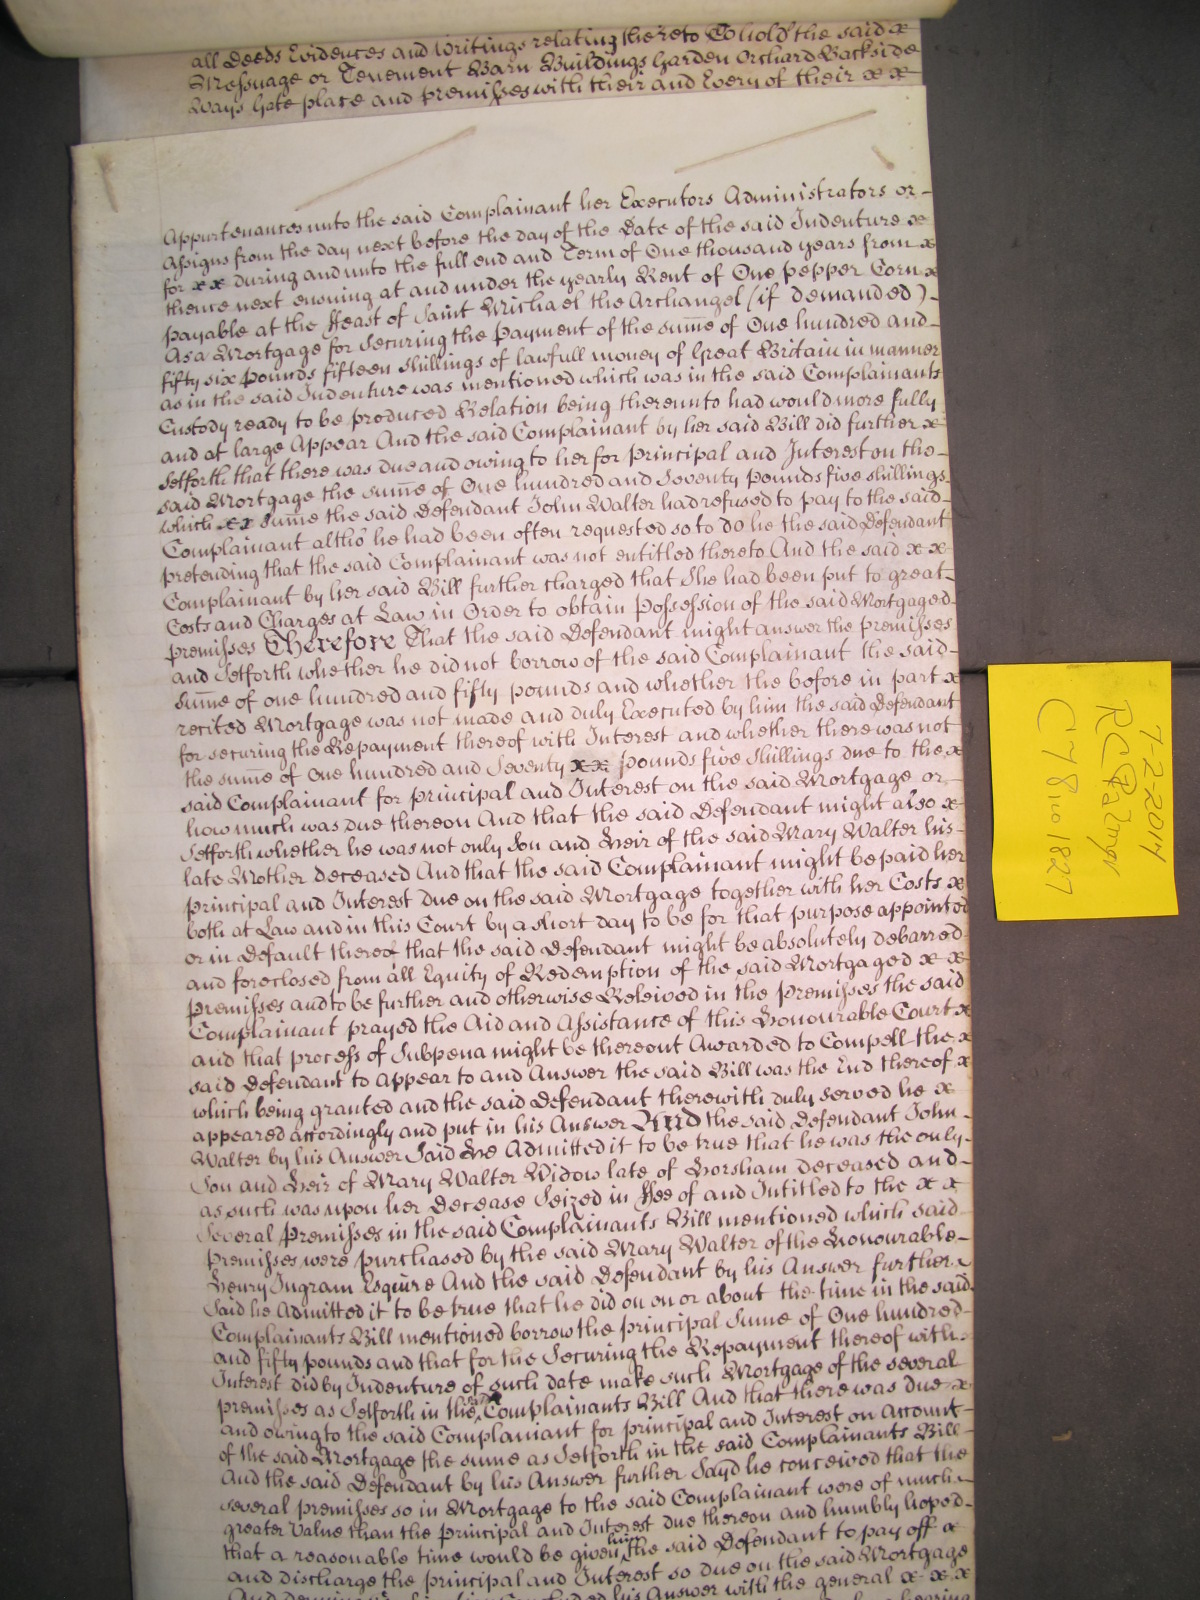 all Deeds Evidences and Writings relating thereto To hold the said x
Messuage or Tenement Barn Buildings Garden Orchard Backside
Ways Gate place and premisses with their and Every of their x x
Appurtenances unto the said Complainant her Executors Administrators or
Assigns from the day next before the day of the Date of the said Indenture x
for x x during and unto the full end and Term of One thousand years from x
thence next ensuing at and under the yearly Rent of One pepper Corn x
payable at the ffeast of Saint Michael the Archangel (if demanded)
As a Mortgage for Securing the Payment of the sume of One hundred and
fifty six Pounds fifteen shillings of lawfull money of Great Britain in manner
as in the said Indenture was mentioned which was in the said Complainants
Custody ready to be produced Relation being thereunto had would more fully
and at large Appear And the said Complainant by her said Bill did further x
Setforth that there was due and owing to her for principal and Interest on the
said Mortgage the sume of One hundred and Seventy Pounds five shillings
which x x sume the said Defendant John Walter had refused to pay to the said
Complainant altho' he had been often requested so to do he the said Defendant
pretending that the said Complainant was not entitled thereto And the said x x
Complainant by her said Bill further charged that She had been put to great
Costs and Charges at Law in Order to obtain Possession of the said Mortgaged
premisses Therefore That the said Defendant might answer the premisses
and Setforth whether he did not borrow of the said Complainant the said
sume of one hundred and fifty pounds and whether the before in part x
recited Mortgage was not made and duly Executed by him the said Defendant
for securing the Repayment thereof with Interest and whether there was not
the sume of One hundred and Seventy x x pounds five Shillings due to the x
said Complainant for principal and Interest on the said Mortgage or
how much was due thereon And that the said Defendant might also x
Setforth whether he was not only Son and Heir of the said Mary Walter his
late Mother deceased And that the said Complainant might be paid her
principal and Interest due on the said Mortgage together with her Costs x
both at Law and in this Court by a short day to be for that purpose appointed
or in Default thereof that the said Defendant might be absolutely debarred
and foreclosed from all Equity of Redemption of the said Mortgaged x x
Premisses and to be further and otherwise Releived in the Premisses the said
Complainant prayed the Aid and Assistance of this Honourable Court x
and that process of Subpena might be thereout Awarded to Compell the x
said Defendant to Appear to and Answer the said Bill was the End thereof x
which being granted and the said Defendant therewith duly served he x
appeared accordingly and put in his Answer And the said Defendant John
Walter by his Answer Said He Admitted it to be true that he was the only
Son and Heir of Mary Walter Widow late of Horsham deceased and
as such was upon her Decease Seized in ffee of and Intitled to the x x
Several Premisses in the said Complainants Bill mentioned which said
Premisses were purchased by the said Mary Walter of the Honourable
Henry Ingram Esquire And the said Defendant by his Answer further x
Said he Admitted it to be true that he did on on or about the time in the said
Complainants Bill mentioned borrow the principal Sume of One hundred
and fifty pounds and that for the Securing the Repayment thereof with
Interest did by Indenture of such date make such Mortgage of the several
premisses as Setforth in the Complainants Bill And that there was due x
and owing to the said Complainant for principal and Interest on Account
of the said Mortgage the sume as Setforth in the said Complainants Bill
And the said Defendant by his Answer further Sayd he conceived that the
several premisses so in Mortgage to the said Complainant were of much
greater Value than the Principal and Interest due thereon and humbly hoped
that a reasonable time would be given him the said Defendant to pay off x
and discharge the principal and Interest so due on the said Mortgage
his Answer with the general x x x
7-2-2014
C78no1827